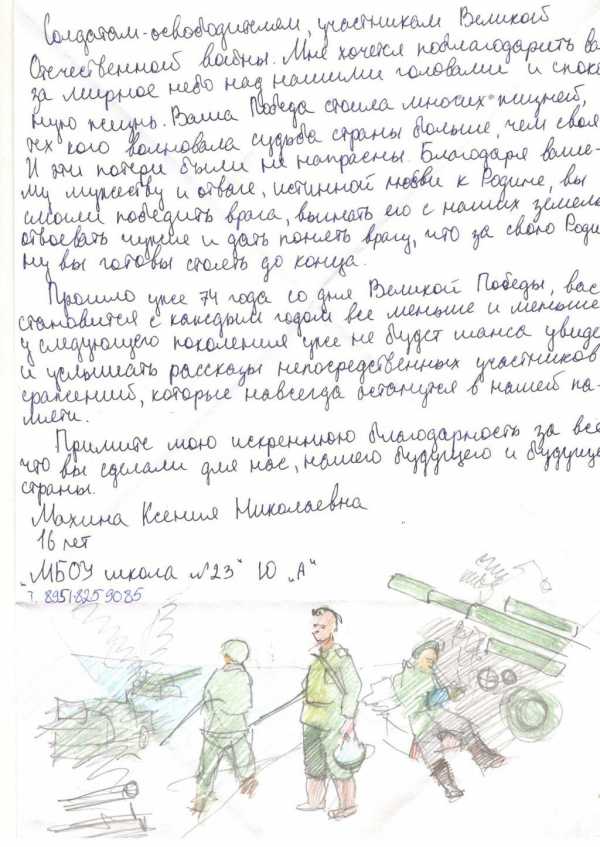 Солдатам-освободителям, участникам Великой
Отечественной войны. Мне хочется поблагодарить ва
за мирное небо над нашими головами и споко
ную жизнь. Ваша Победа стоила многих жизней,
тех кого волновала судьба страны больше, чем своя
И эти потери были не напрасны. Благодаря ваше-
му мужеству и отваге, истинной любви к Родине, вы
смогли победить врага, выгнать его с наших земель
отвоевать чужие и дать понять врагу, что за свою Роди
ну вы готовы стоять до конца.
Прошло уже 74 года со дня Великой Победы, вас
становится с каждым годом все меньше и меньше
у следующего поколения уже не будет шанса увиде
и услышать рассказы непосредственных участников
сражений, которые навсегда останутся в нашей па-
мяти.
Примите мою искреннюю благодарность за всё
что вы сделали для нас, нашего будущего и будуще
страны.
Махина Ксения Николаевна
16 лет
"МБОУ школа №23" 10 "А"
т. 89518259085